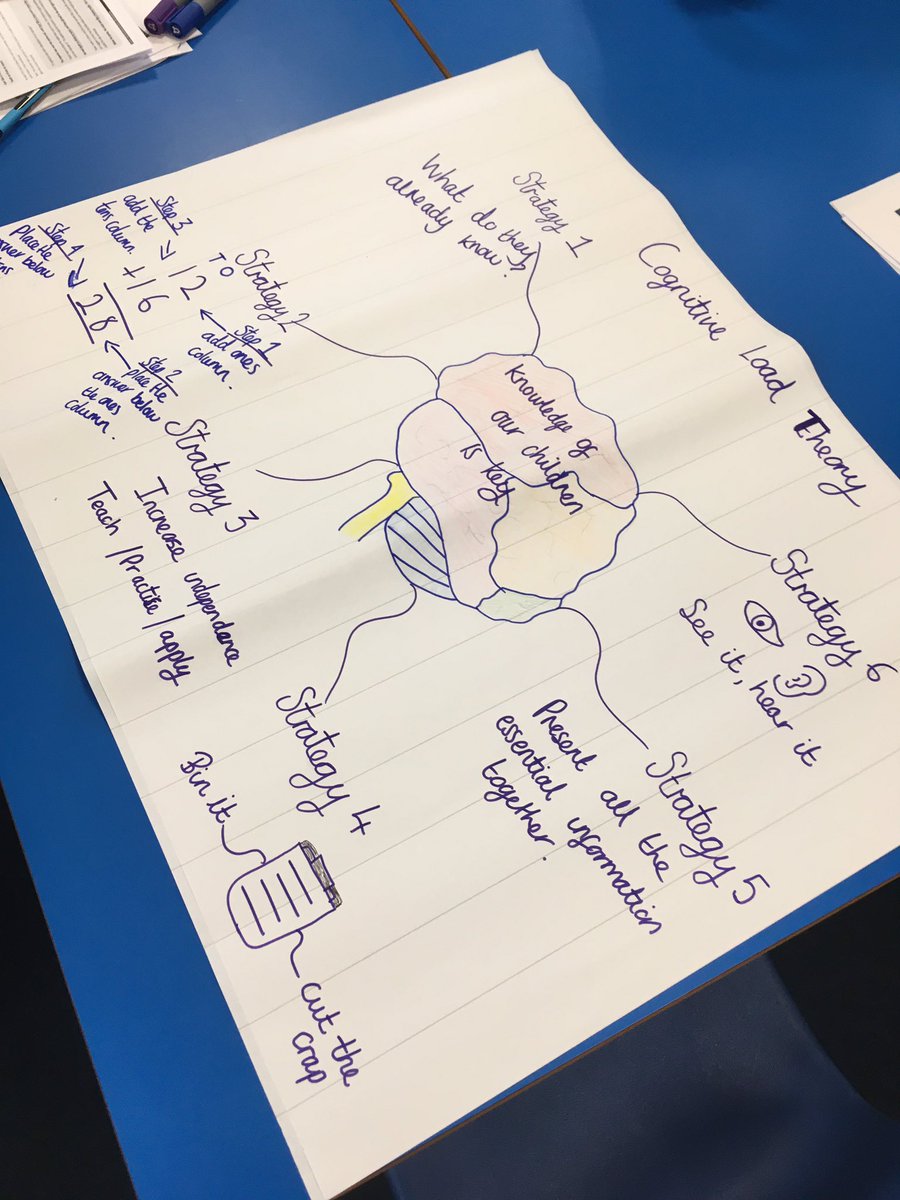 Cognitive Load Theory
Strategy 1
What do they
already know?
Strategy 2
T O
12
+16
28
Step 1
add ones
column.
Step 2
place the
answer below
the ones
column.
Step 3
add the
tens column.
Step 4
Place the
answer below
Strategy 3
Increase independence
Teach / Practise / apply
Strategy 4
Bin it
cut the
crap
Strategy 5
Present all the
essential information
together.
Strategy 6
See it, hear it
Knowledge of
our children
is key